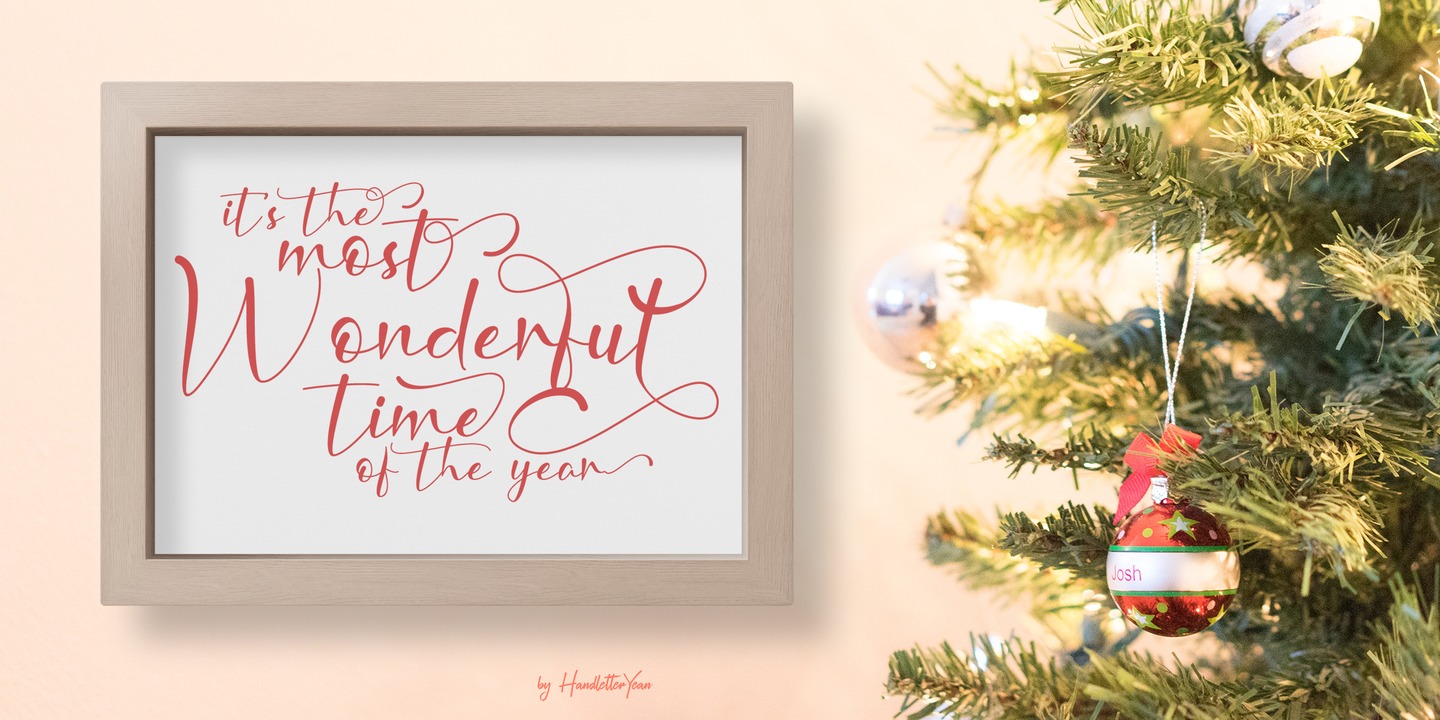 it's the
most
Wonderful
time
of the year
Josh
by HandletterYean